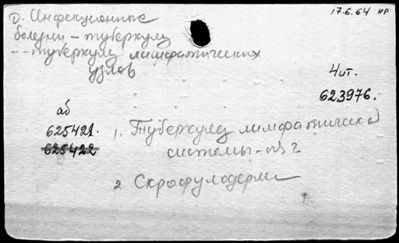 D. Инфекционные 17.6.64 НР
болезни – туберкулез
-- туберкулез лимфатических
узлов
4 ит.
623976.
аб
625421. 1. Туберкулез лимфатической
625422 системы - №2
2 Скрофулодерма